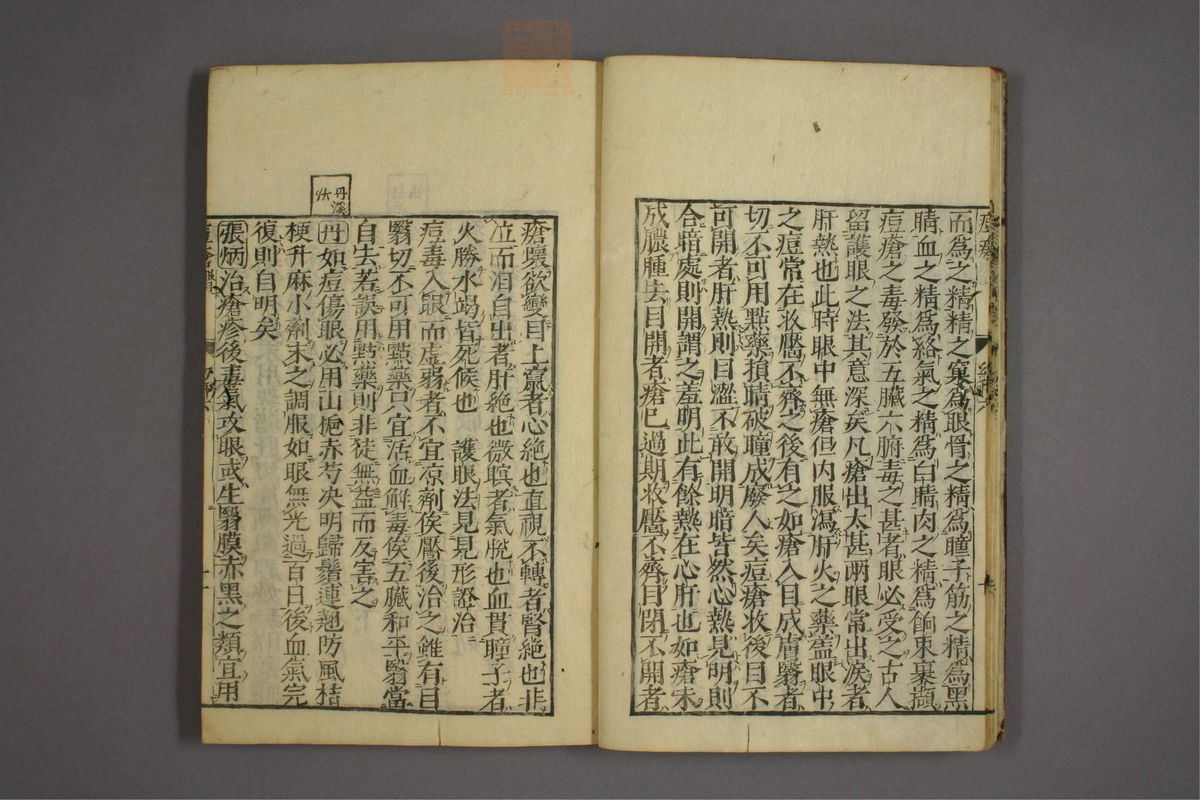 而為之精精之窠為眼骨之精為瞳子筋之精為黑
睛血之精為絡氣之精為白睛肉之精為約束裹擷
痘瘡之毒發於五臟六腑毒之甚者眼必受之古人
留護眼之法其意深矣凡瘡出太甚兩眼常出淚者
肝熱也此時眼中無瘡但内服瀉肝火之藥蓋眼中
之痘常在收靨不齊之後有之如瘡入目成膚翳者
切不可用點藥損睛破瞳成廢人矣痘瘡收後目不
可開者肝熱則目澀不敢開明暗皆然心熱見明則
合暗處則開謂之羞明此有餘熱在心肝也如瘡未
成膿腫去目開者瘡已過期收靨不齊目閉不開者
瘡壞欲變目上竄者心絶也直視不轉者腎絶也非
泣而泪自出者肝絶也微瞑者氣脱也血貫瞳子者
火勝水竭皆死候也 護眼法見見形證治
痘毒入眼而虚弱者不宜凉劑俟靨後治之雖有目
翳切不可用點藥只宜活血解毒俟五臟和平翳當
自去若誤用點藥則非徒無益而反害之
丹溪
法
丹如痘傷眼必用山梔赤芍决明歸鬚連翹防風桔
梗升麻小劑末之調服如眼無光過百日後血氣完
復則自明矣
張炳治瘡疹後毒氣攻眼或生翳膜赤黑之類宜用